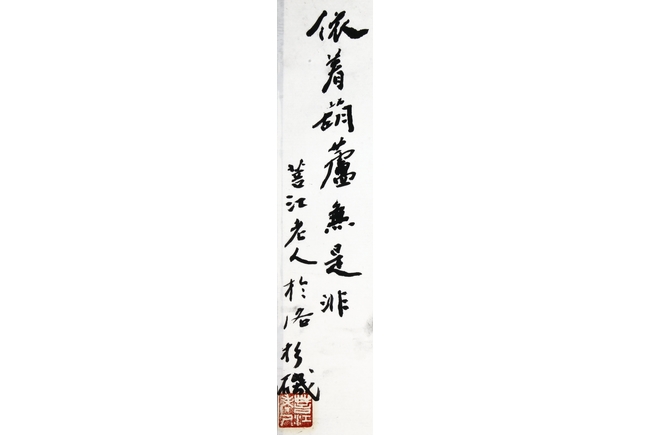 依着葫蘆無是非
菩江老人於洛杉磯